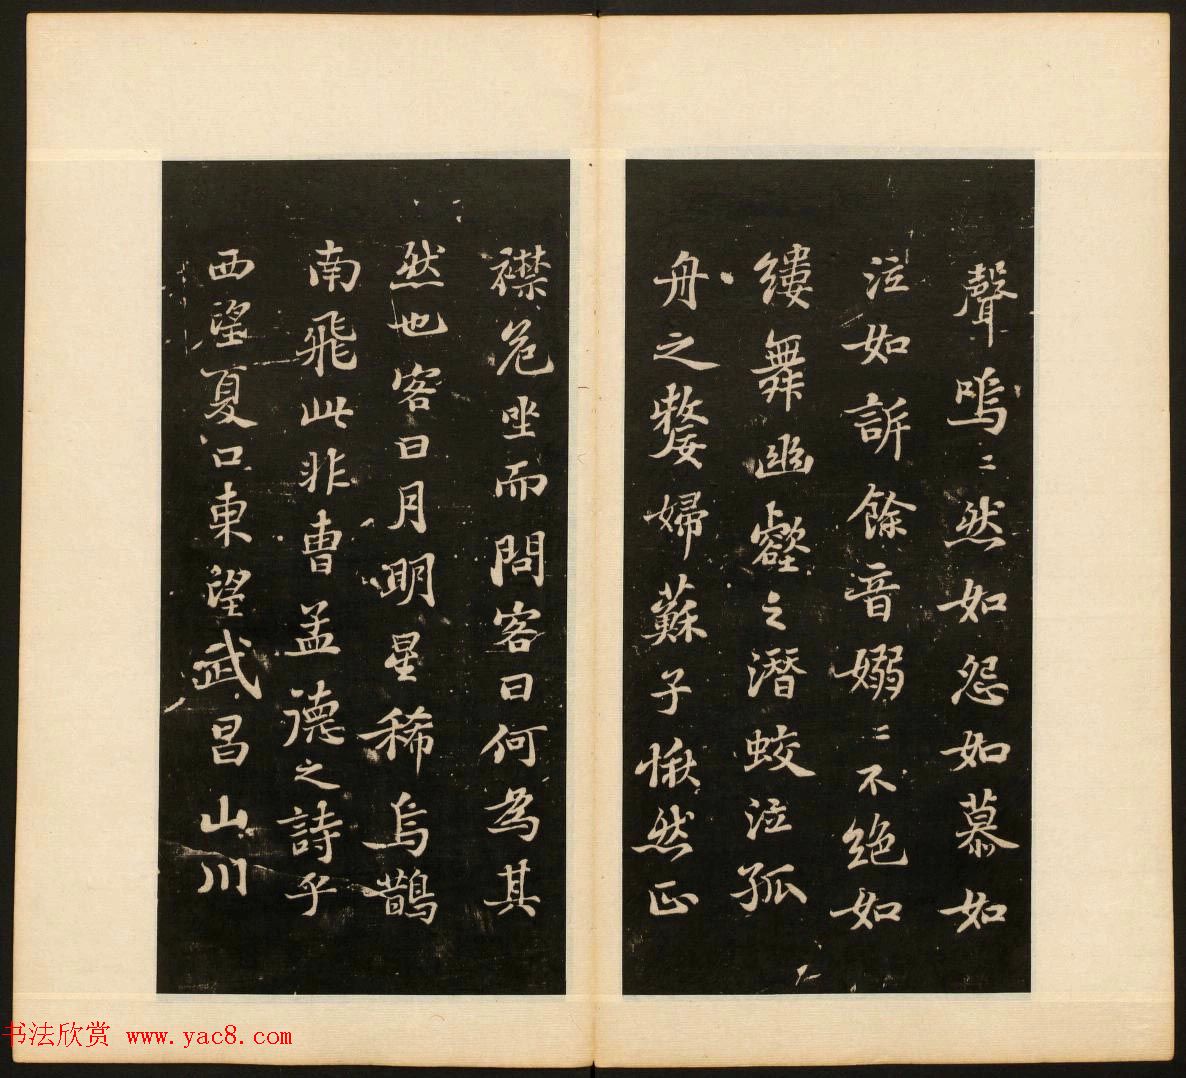 聲嗚〻然如怨如慕如
泣如訴餘音嫋〻不絕如
縷舞幽壑之潛蛟泣孤
舟之嫠婦蘇子愀然正
襟危坐而問客曰何為其
然也客曰月明星稀烏鵲
南飛此非曹孟德之詩乎
西望夏口東望武昌山川
书法欣赏 www.yac8.com